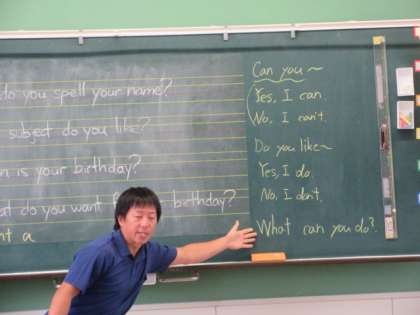 do you spell your name?
subject do you like?
n is your birthday?
at do you want f birthday?
nt a
Can you~
Yes, I can.
No, I can't.
Do you like~
Yes, I do.
No, I don't.
What can you do?